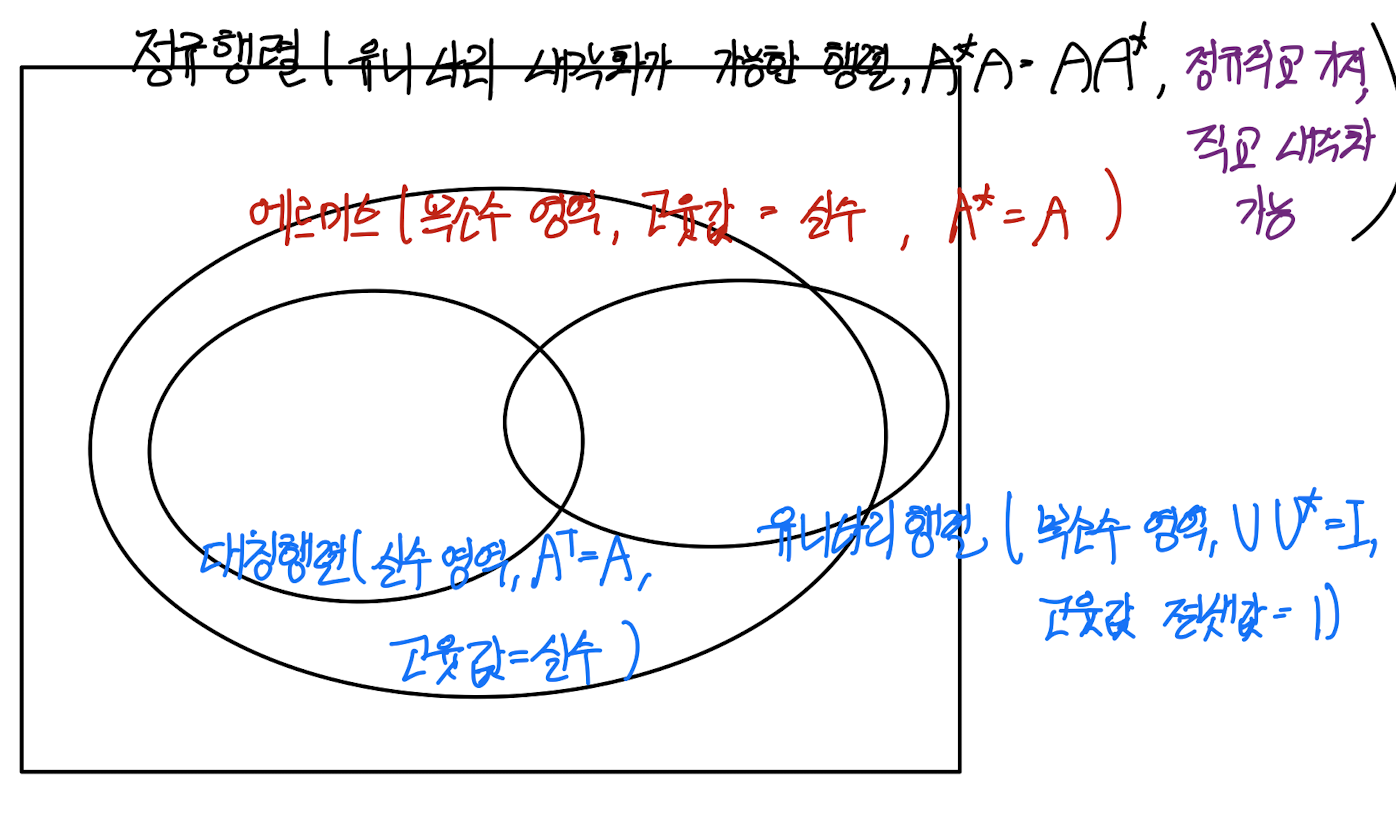 정규행렬 ( 유니타리 대각화가 가능한 행렬, A*A = AA*, 정규직교 기저,
직교 대각화
가능 )
에르미트 ( 복소수 영역, 고윳값 = 실수 , A* = A )
대칭행렬 ( 실수 영역, Aᵀ = A,
고윳값 = 실수 )
유니타리 행렬 ( 복소수 영역, U U* = I,
고윳값 절댓값 = 1)